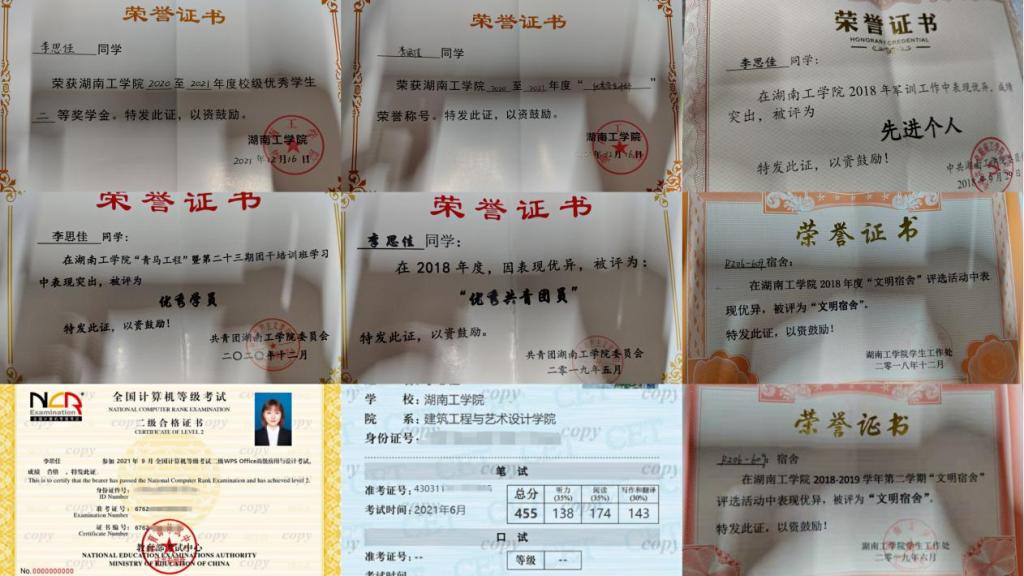 荣誉证书
李思佳 同学
荣获湖南工学院 2020 至 2021 年度校级优秀学生
二 等奖学金。特发此证，以资鼓励。
湖南工学院
2021年12月16日
荣誉证书
李思佳 同学
荣获湖南工学院 2020 至 2021 年度“
”
荣誉称号。特发此证，以资鼓励。
湖南工学院
12月16日
荣誉证书
HONORARY CREDENTIAL
李思佳 同学：
在湖南工学院 2018 年军训工作中表现优异，成绩
突出，被评为
先进个人
特发此证，以资鼓励！
中共湖南工学院
2018年9月29日
荣誉证书
李思佳 同学：
在湖南工学院“青马工程”暨第二十三期团干培训班学习
中表现突出，被评为
优秀学员
特发此证，以资鼓励！
共青团湖南工学院委员会
二〇二〇年十二月
荣誉证书
李思佳 同学：
在 2018 年度，因表现优异，被评为：
“优秀共青团员”
特发此证，以资鼓励。
共青团湖南工学院委员会
二〇一九年五月
荣誉证书
R206-609 宿舍：
在湖南工学院 2018 年度“文明宿舍”评选活动中表
现优异，被评为“文明宿舍”.
特发此证，以资鼓励！
湖南工学院学生工作处
二〇一八年十二月
NCR
Examination
全国计算机等级考试
NATIONAL COMPUTER RANK EXAMINATION
二级合格证书
CERTIFICATE OF LEVEL 2
参加 2021 年 9 月 全国计算机等级考试二级WPS Office高级应用与设计考试，
成绩 合格 ，特发此证。
This is to certify that the bearer has passed the National Computer Rank Examination and has achieved level 2.
身份证件号:
ID Number
准考证号: 6762
Examination Number
证书编号: 6762
Certificate Number
教育部考试中心
NATIONAL EDUCATION EXAMINATIONS AUTHORITY
MINISTRY OF EDUCATION OF CHINA
No. 0000000000
copy
学 校: 湖南工学院
院 系: 建筑工程与艺术设计学院
身份证号:
笔 试
准考证号: 430311
考试时间: 2021年6月
总分 听力(35%) 阅读(35%) 写作和翻译(30%)
455 138 174 143
口 试
准考证号: --
等级 --
考试时间
荣誉证书
R206-609 宿舍
在湖南工学院 2018-2019 学年第二学期“文明宿舍”
评选活动中表现优异，被评为“文明宿舍”.
特发此证，以资鼓励！
湖南工学院学生工作处
二〇一九年六月